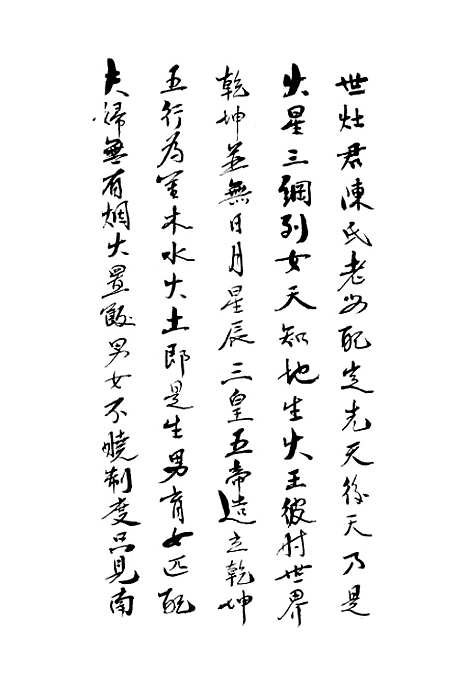 世灶君陳氏老母配定先天後天乃是
火星三綱列女天知地生火王彼时世界
乾坤並無日月星辰三皇五帝造立乾坤
五行為金木水火土即是生男育女匹配
夫婦無有烟火置飯男女不曉制度只見南